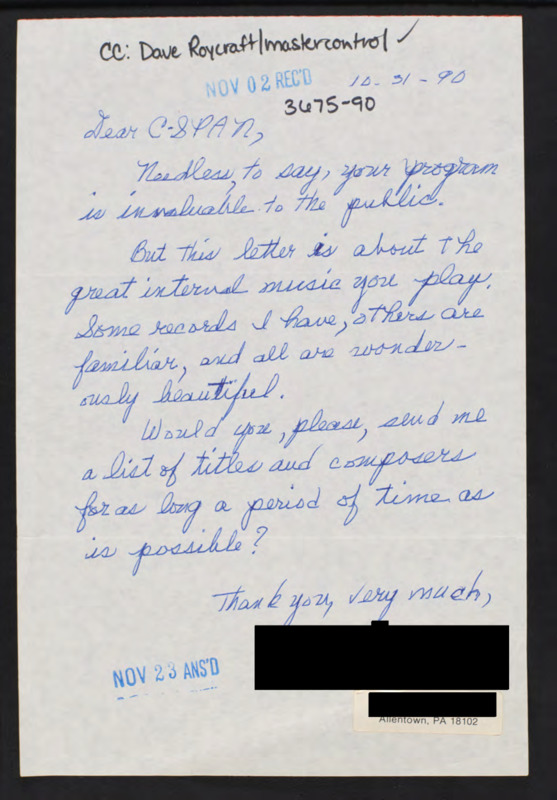 CC: Dave Roycraft/mastercontrol ✓
NOV 02 REC'D
10-31-90
3675-90
Dear C-SPAN,
Needless, to say, your program
is invaluable to the public.
But this letter is about the
great interval music you play.
Some records I have, others are
familiar, and all are wonder-
ously beautiful.
Would you, please, send me
a list of titles and composers
for as long a period of time as
is possible?
Thank you, very much,
NOV 23 ANS'D
Allentown, PA 18102